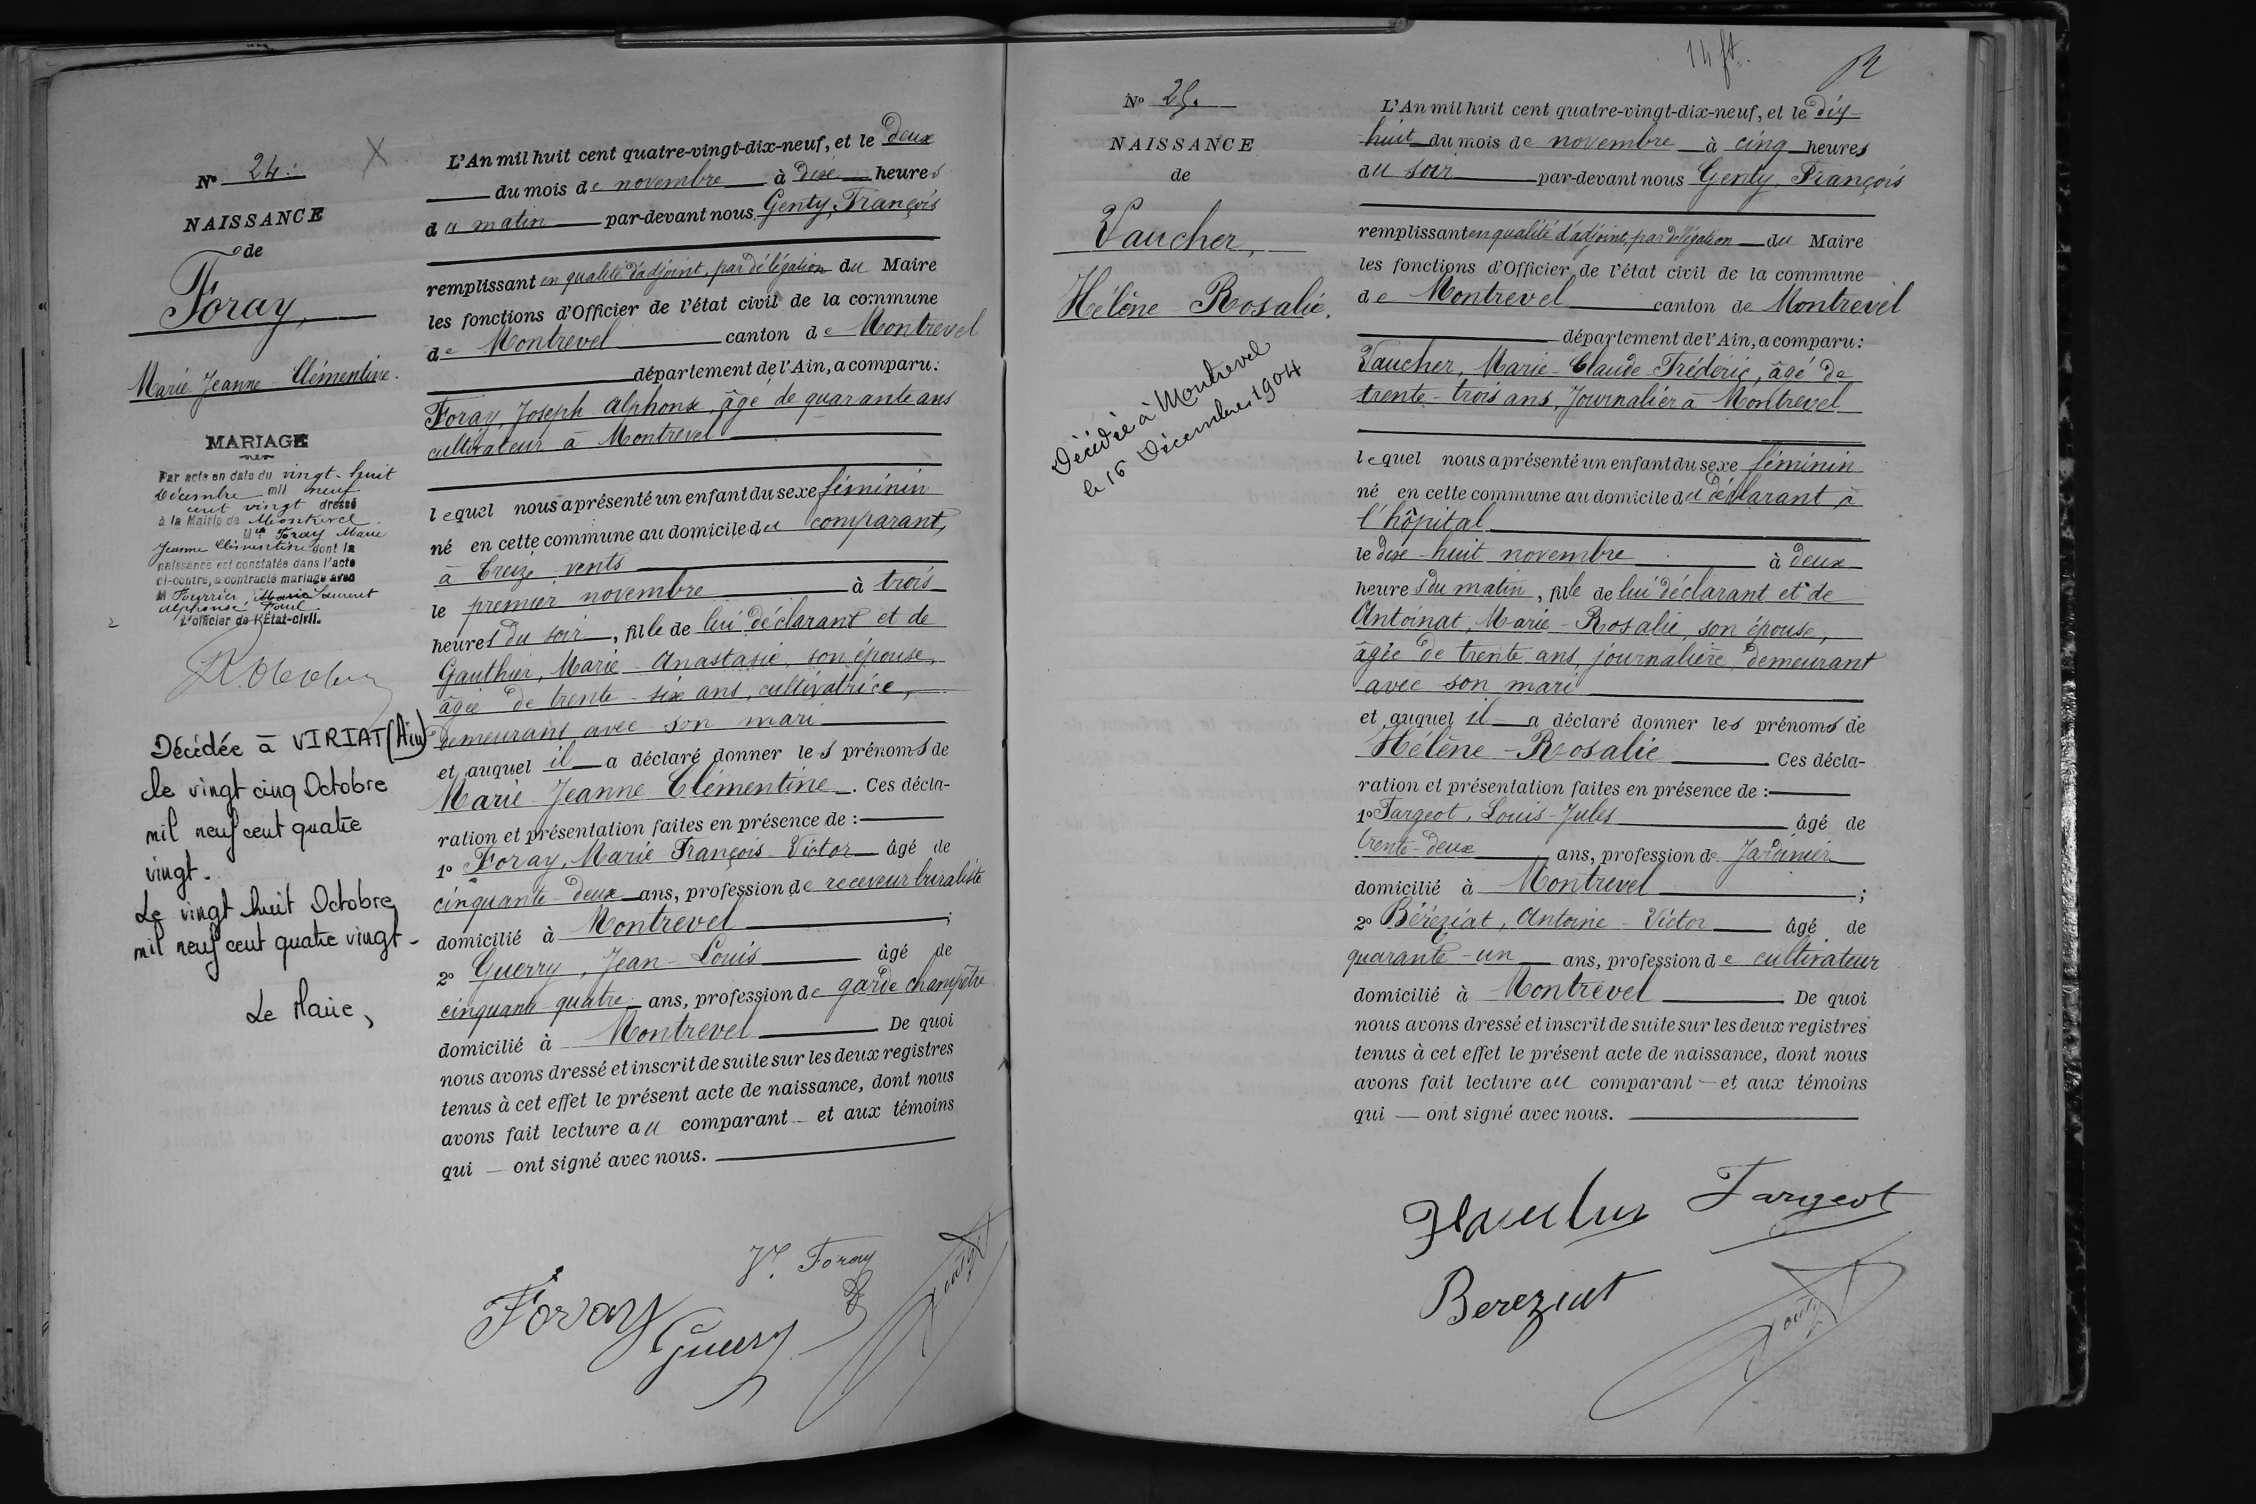 N° 24.
NAISSANCE
de
Foray,
Marie Jeanne Clémentine.
MARIAGE
Par acte en date du vingt-huit
Décembre mil neuf
cent vingt dressé
à la Mairie de Montrevel
Mlle Foray Marie
Jeanne Clémentine dont la
naissance est constatée dans l'acte
ci-contre, a contracté mariage avec
M Fourrier, Marie Laurent
Alphonse Paul
L'officier de l'Etat-civil.
Décédée à VIRIAT (Ain)
le vingt cinq Octobre
mil neuf cent quatre
vingt.
Le vingt huit Octobre
mil neuf cent quatre vingt-
Le Maire,
L'An mil huit cent quatre-vingt-dix-neuf, et le deux
du mois de novembre à dix heures
du matin par-devant nous Genty, François
remplissant en qualité d'adjoint, par délégation du Maire
les fonctions d'Officier de l'état civil de la commune
de Montrevel canton de Montrevel
département de l'Ain, a comparu:
Foray, Joseph Alphonse, âgé de quarante ans
cultivateur à Montrevel
lequel nous a présenté un enfant du sexe féminin
né en cette commune au domicile du comparant,
à Treize-vents
le premier novembre à trois
heures du soir, fille de lui déclarant et de
Gauthier, Marie-Anastasie, son épouse,
âgée de trente-six ans, cultivatrice,
demeurant avec son mari
et auquel il a déclaré donner les prénoms de
Marie Jeanne Clémentine. Ces décla-
ration et présentation faites en présence de :
1° Foray, Marie François-Victor âgé de
cinquante-deux ans, profession de receveur buraliste
domicilié à Montrevel ;
2° Guerry, Jean-Louis âgé de
cinquante quatre ans, profession de garde champêtre
domicilié à Montrevel De quoi
nous avons dressé et inscrit de suite sur les deux registres
tenus à cet effet le présent acte de naissance, dont nous
avons fait lecture au comparant et aux témoins
qui — ont signé avec nous.
Vr. Foray
Foray
Guerry
Genty
14 ft.
N° 25.
NAISSANCE
de
Vaucher,
Hélène Rosalie.
Décédée à Montrevel
le 16 Décembre 1904
L'An mil huit cent quatre-vingt-dix-neuf, et le dix-
huit du mois de novembre à cinq heures
du soir par-devant nous Genty, François
remplissant en qualité d'adjoint, par délégation du Maire
les fonctions d'Officier de l'état civil de la commune
de Montrevel canton de Montrevel
département de l'Ain, a comparu:
Vaucher, Marie-Claude-Frédéric, âgé de
trente-trois ans, Journalier à Montrevel
lequel nous a présenté un enfant du sexe féminin
né en cette commune au domicile du déclarant, à
l'hôpital
le dix-huit novembre à deux
heures du matin, fille de lui déclarant et de
Antoinat, Marie-Rosalie, son épouse,
âgée de trente ans, journalière, demeurant
avec son mari
et auquel il a déclaré donner les prénoms de
Hélène-Rosalie Ces décla-
ration et présentation faites en présence de :
1° Targeot, Louis-Jules âgé de
trente-deux ans, profession de Jardinier
domicilié à Montrevel ;
2° Béréziat, Antoine-Victor âgé de
quarante-un ans, profession de cultivateur
domicilié à Montrevel De quoi
nous avons dressé et inscrit de suite sur les deux registres
tenus à cet effet le présent acte de naissance, dont nous
avons fait lecture au comparant — et aux témoins
qui — ont signé avec nous.
Targeot
Bereziat
Genty